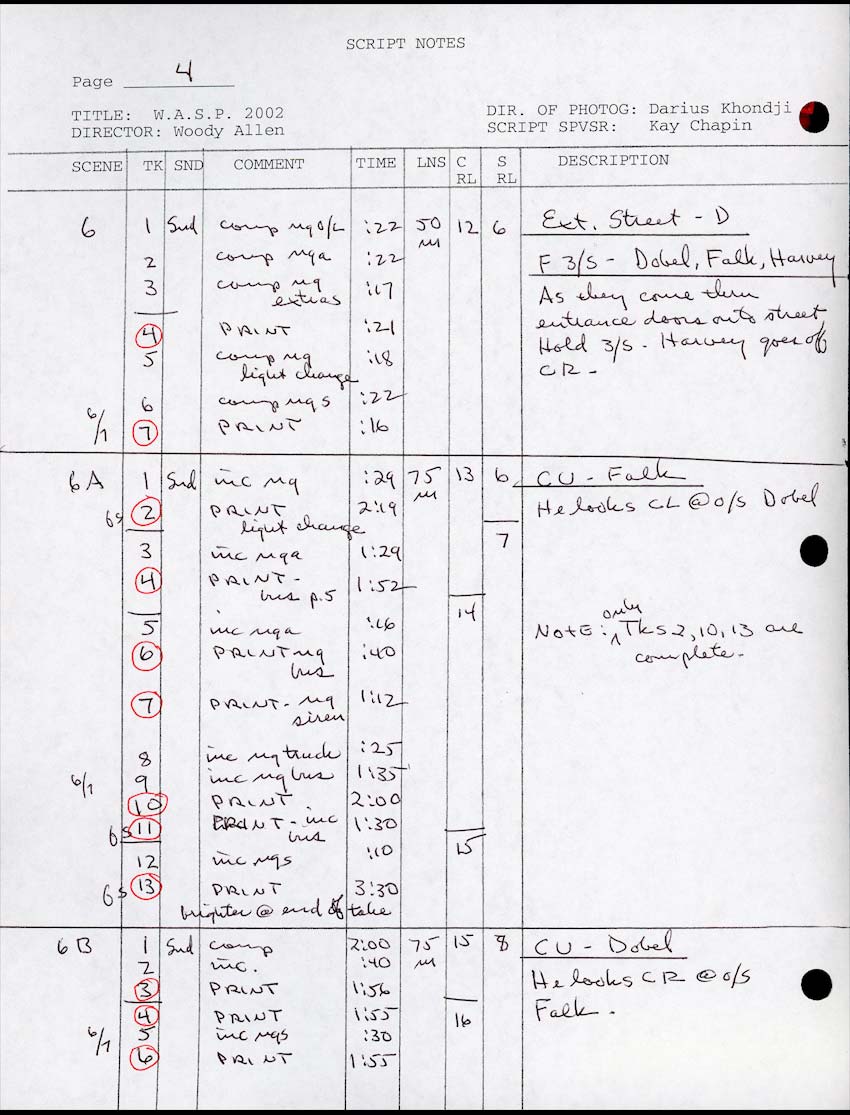 SCRIPT NOTES
Page 4
TITLE: W.A.S.P. 2002
DIRECTOR: Woody Allen
DIR. OF PHOTOG: Darius Khondji
SCRIPT SPVSR: Kay Chapin
SCENE TK SND COMMENT TIME LNS C RL S RL DESCRIPTION
6 1 Snd comp ng o/L :22 50 m 12 6 Ext. Street - D
2 comp nga :22 F 3/s - Dobel, Falk, Harvey
3 comp ng extras :17 As they come thru
4 PRINT :21 entrance doors onto street
5 comp ng light change :18 Hold 3/s. Harvey goes off
CR.
6 comp ngs :22
6/7 7 PRINT :16
6A 1 Snd inc ng :29 75 m 13 6 CU - Falk
6s 2 PRINT light change 2:19 He looks CL @ o/s Dobel
7
3 inc nga 1:29
4 PRINT - bus p.5 1:52
14
5 inc nga :16 NOTE: only Tks 2, 10, 13 are
6 PRINT ng bus :40 complete.
7 PRINT - ng siren 1:12
8 inc ng truck :25
6/7 9 inc ng bus 1:35
10 PRINT 2:00
6s 11 PRINT - inc bus 1:30
12 inc ngs :10 15
6s 13 PRINT 3:30
brighter @ end of take
6B 1 Snd comp 2:00 75 m 15 8 CU - Dobel
2 inc. :40
3 PRINT 1:56 He looks CR @ o/s
4 PRINT 1:55 16 Falk.
6/7 5 inc ngs :30
6 PRINT 1:55